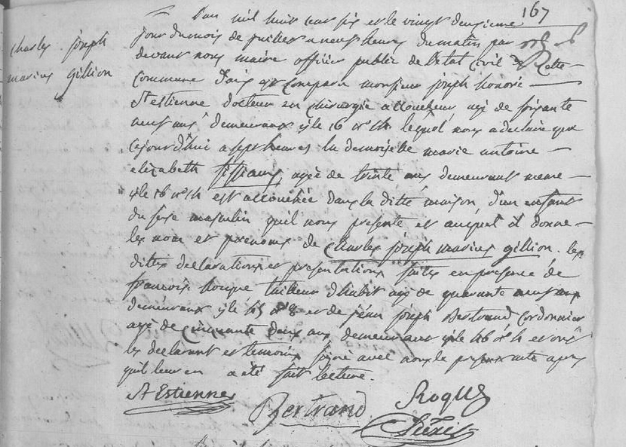 167
charles joseph
marius gillion
L'an mil huit cent six et le vingt deuxieme
jour du mois de juillet a neuf heures du matin par
devant nous maire officier public de l'etat civil de cette
commune d'aix est comparu monsieur joseph honoré
St estienne docteur en chirurgie accoucheur agé de soixante
neuf ans demeurant isle 16 n° 14 lequel nous a declaré que
cejourd'hui a sept heures la demoiselle marie antoine
elizabeth agée de trente ans demeurant meme
isle 16 n° 14 est accouchée dans la ditte maison d'un enfant
du sexe masculin qu'il nous presente et auquel il donne
les nom et prenoms de charles joseph marius gillion. les
dites declarations et presentations faites en presence de
francois Roque tailleur d'habit agé de quarante neuf ans
demeurant isle n° 8 et de jean joseph Bertrand cordonnier
agé de cinquante deux ans demeurant isle 46 n° 4 et ont
les declarant et temoins signé avec nous le present acte apres
qu'il leur en a été fait lecture.
St Estienne
Bertrand
Roque